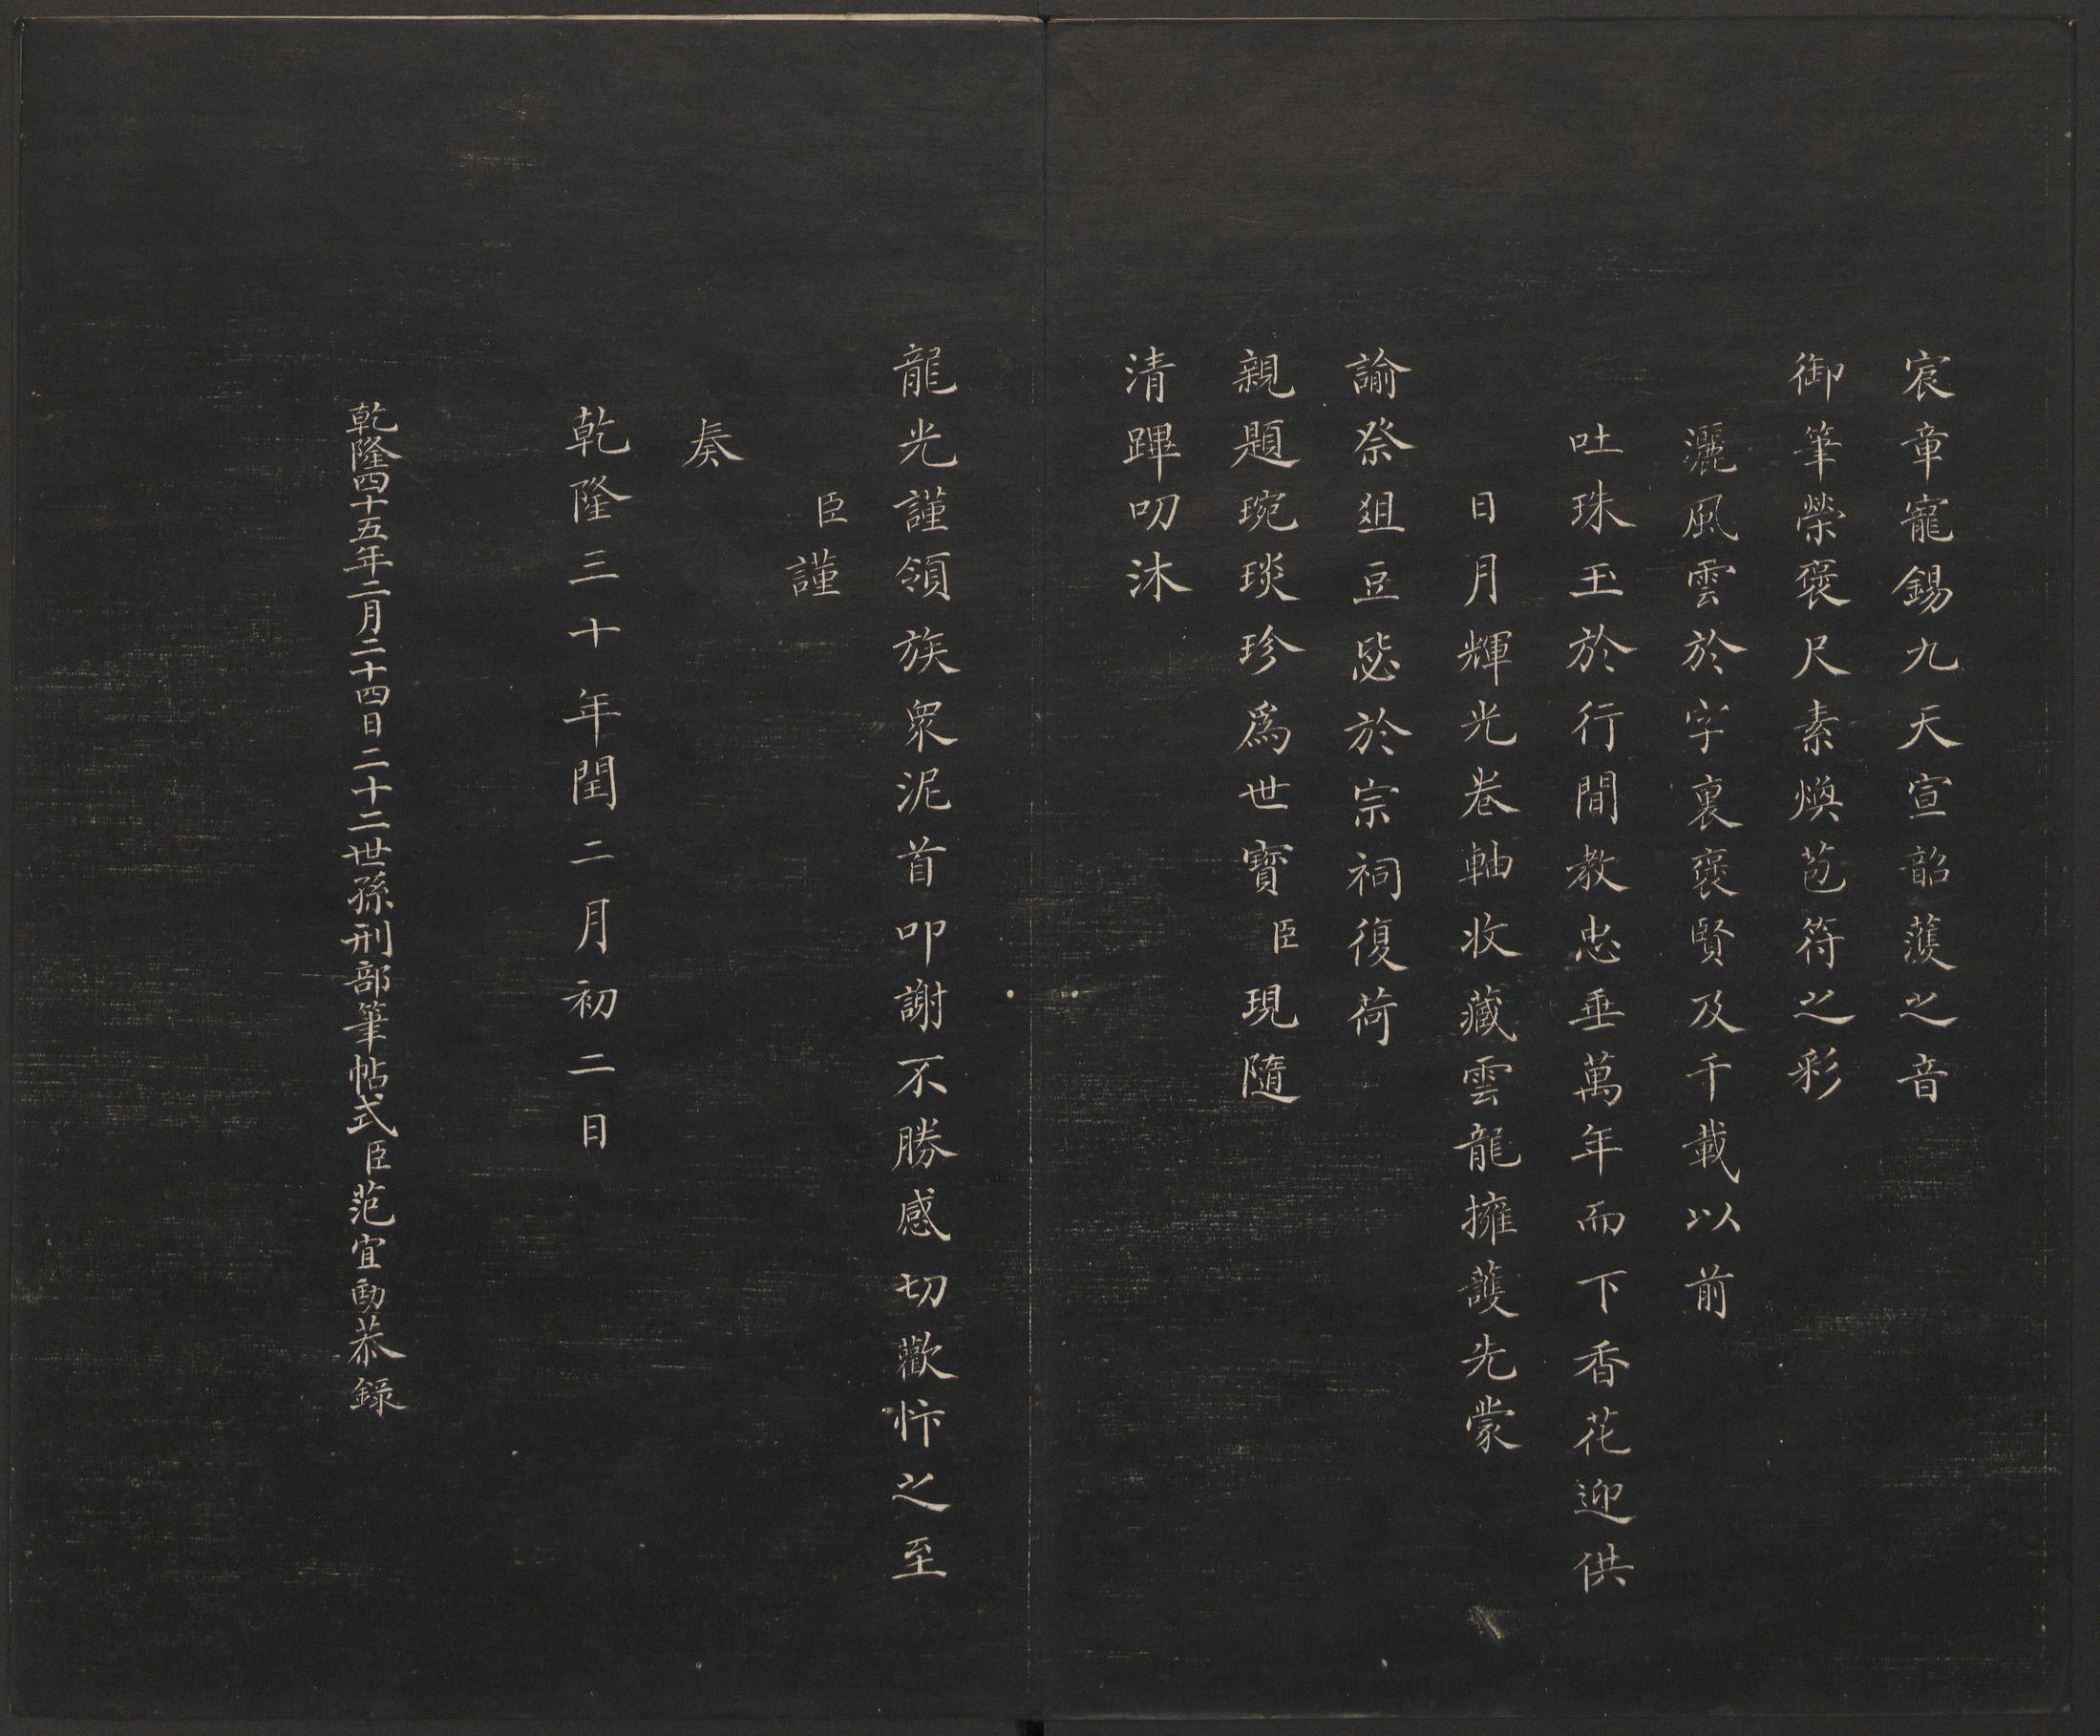 宸章寵錫九天宣韶護之音
御筆榮褒尺素煥苞符之彩
灑風雲於字裏褒賢及千載以前
吐珠玉於行間教忠垂萬年而下香花迎供
日月輝光卷軸收藏雲龍擁護先蒙
諭祭俎豆毖於宗祠復荷
親題琬琰珍爲世寳臣現隨
清蹕叨沐
龍光謹領族衆泥首叩謝不勝感切歡忭之至
臣謹
奏
乾隆三十年閏二月初二日
乾隆四十五年二月二十四日二十二世孫刑部筆帖式臣范宜勳恭錄